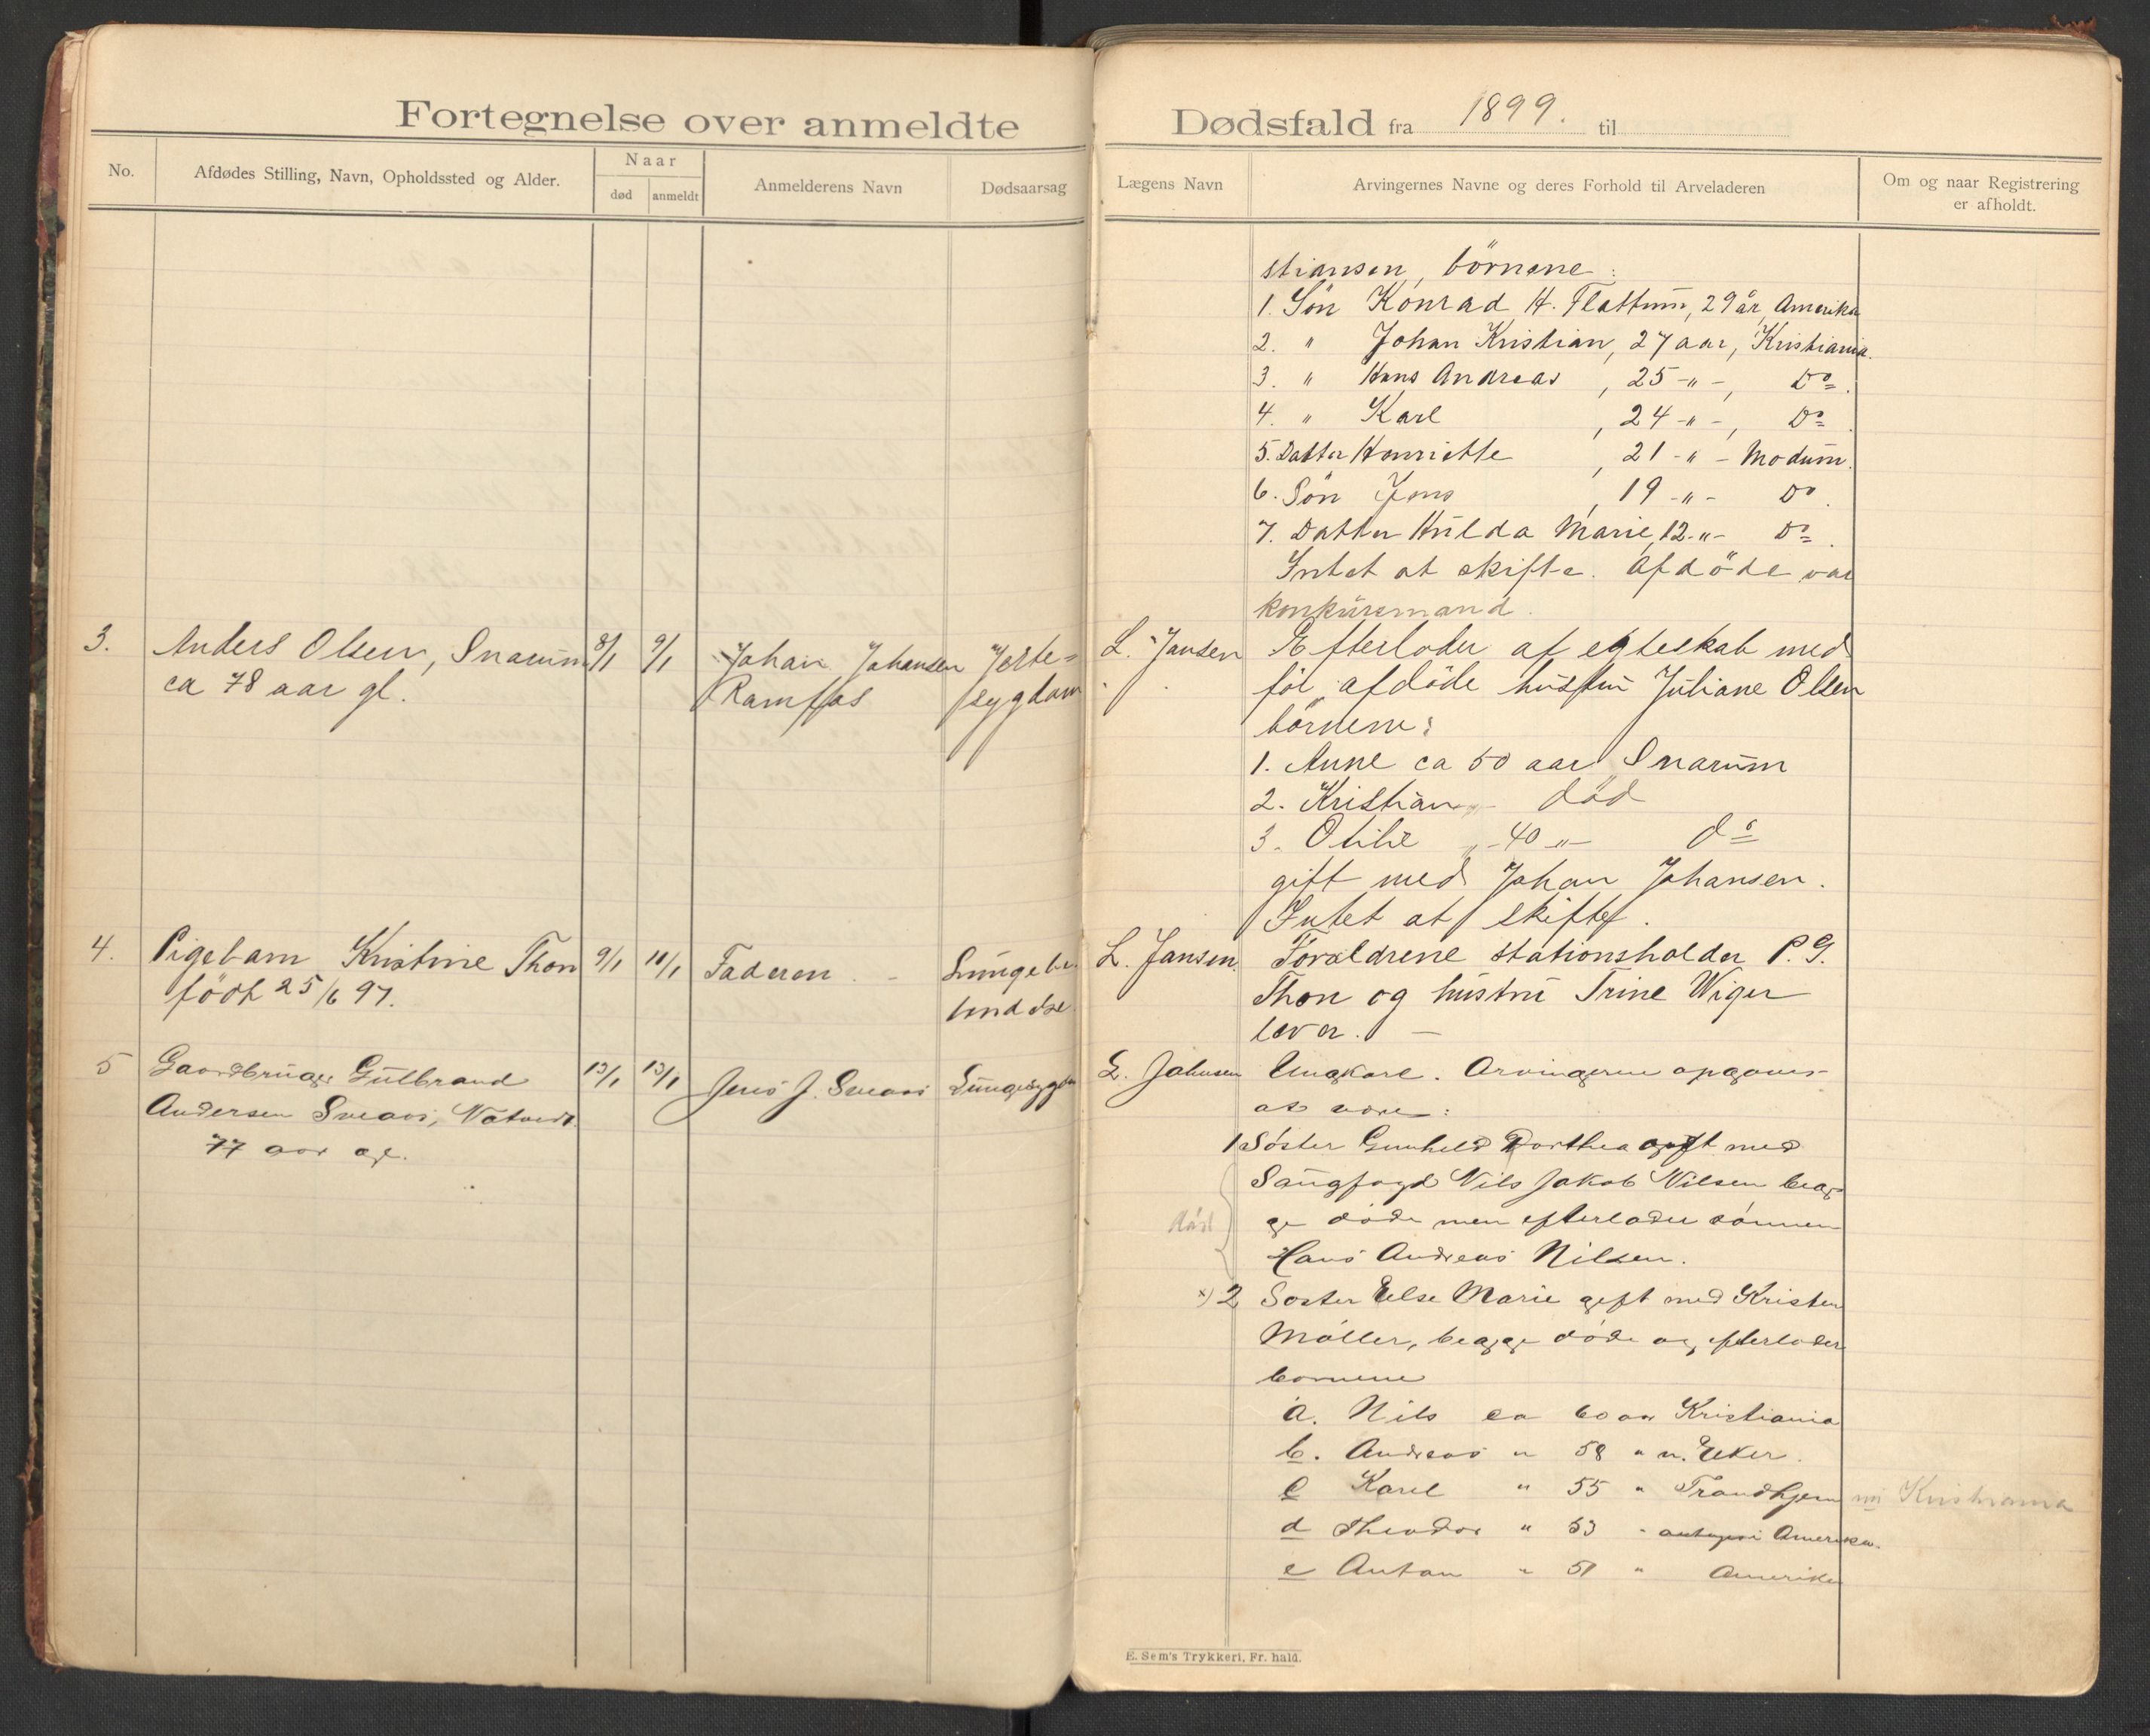 Fortegnelse over anmeldte
No.
Afdødes Stilling, Navn, Opholdssted og Alder.
Naar
død
anmeldt
Anmelderens Navn
Dødsaarsag
3.
Anders Olsen, Snarum
ca 78 aar gl.
8/1
9/1
Johan Johansen
Ramfos
Jerte=
sygdom
4.
Pigebarn Kristine Thon
född 25/6 97.
9/1
10/1
Faderen
Lungebe-
tendelse
5
Gaardbruger Gulbrand
Andersen Sveaas,
77 aar gl.
13/1
13/1
Jens J. Sveaas
Lungesygdom
Dødsfald fra 1899. til
Lægens Navn
Arvingernes Navne og deres Forhold til Arveladeren
Om og naar Registrering
er afholdt.
stiansen, börnene:
1. Sön Konrad H. Flattum, 29 år, Amerika
2. " Johan Kristian, 27 aar, Kristiania.
3. " Hans Andreas, 25 -"-, Do.
4. " Karl, 24 -"-, Do.
5. Datter Henriette, 21 -"- Modum.
6. Sön Jens, 19 -"- Do.
7. Datter Hulda Marie, 12 -"- Do.
Intet at skifte. Afdöde var
konkursmand.
L. Jansen
Efterlader af egteskab med
för afdöde hustru Juliane Olsen
börnene:
1. Anne ca 50 aar Snarum
2. Kristian - död
3. Otilie " - 40 -"- do
gift med Johan Johansen.
Intet at skifte.
L. Jansen.
Forældrene stationsholder P. G.
Thon og hustru Trine Wiger
lever. -
L. Johnsen
Ungkarl. Arvingerne opgaves
at være:
1 Söster Gunhild Dorthea gift med
Saugfogd Nils Jakob Nilsen beg-
ge döde men efterlader sönnen
Hans Andreas Nilsen.
död
x) 2 Söster Else Marie gift med Kristen
Möller, begge döde og efterlader
börnene
a. Nils ca 60 aar Kristiania
b. Andreas " 58 " n. Eker.
c Karel " 55 " Trondhjem nu Kristiania
d Theodor " 53 " i Amerika.
e Anton " 51 " Amerika
E. Sem's Trykkeri, Fr. hald.